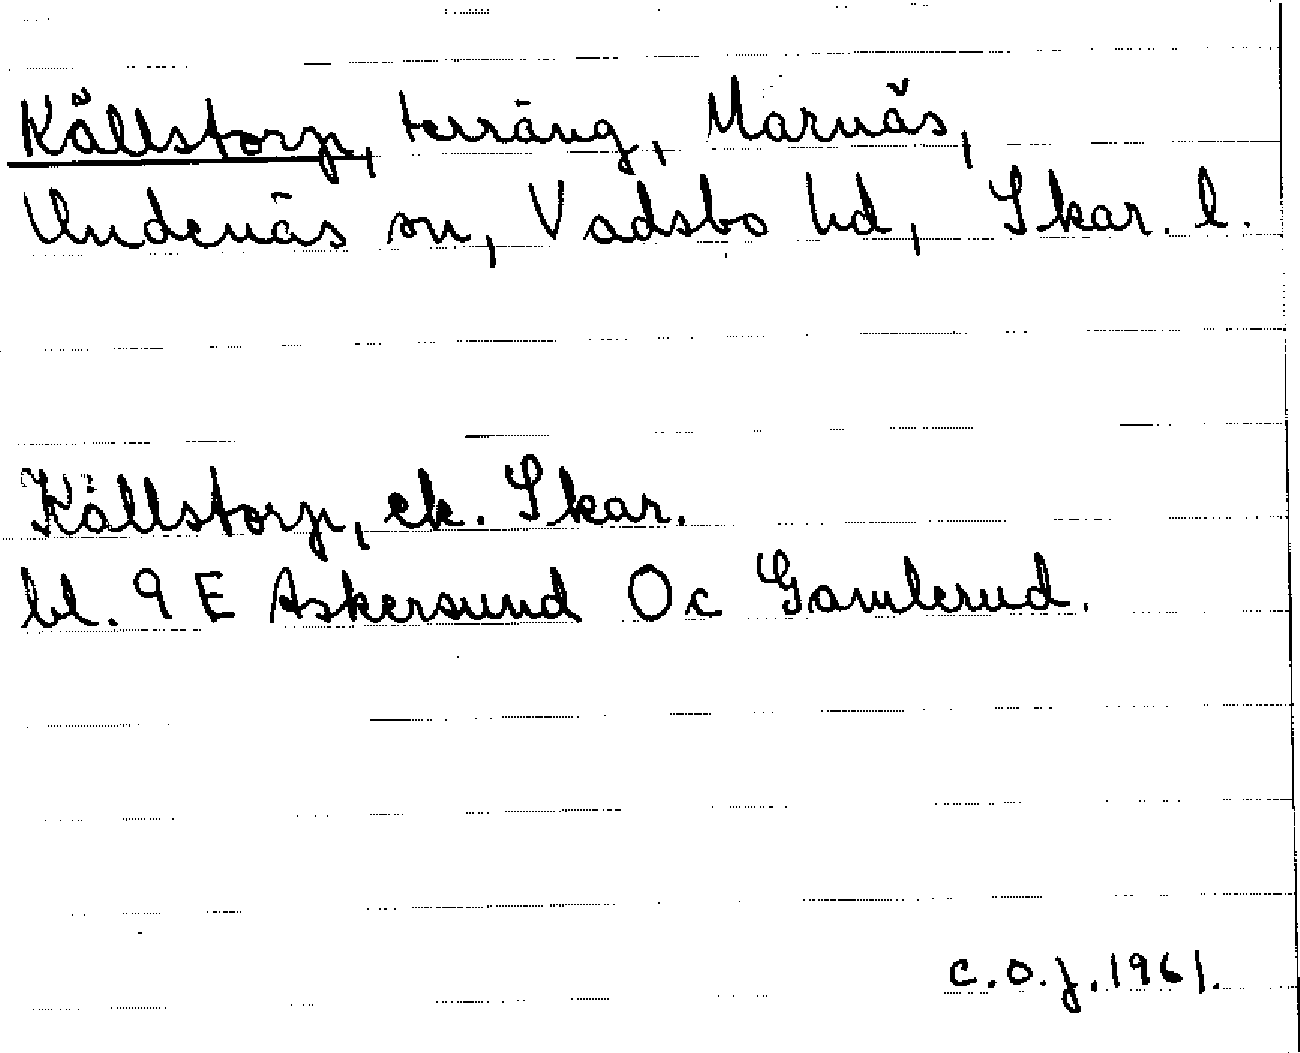 Källstorp, terräng, Marnäs,
Undenäs sn, Vadsbo hd, Skar. l.
Källstorp, ek. Skar.
bl. 9 E Askersund 0 c Gamlerud.
C.O.J. 1961.